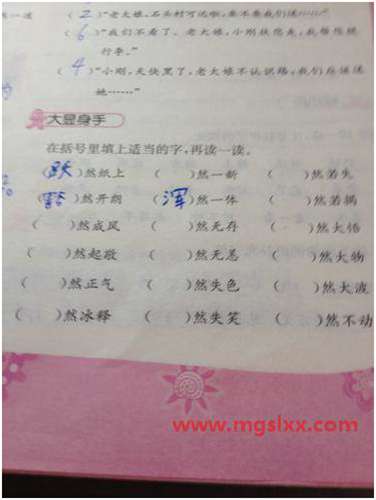 (2)"老大娘,石头村可远啦,要不要我们送……"
(6)"我们不看了。老大娘,小刚扶您走,我帮您提
行李。"
(4)"小刚,天快黑了,老大娘不认识路,我们应该送
她……"
大显身手
在括号里填上适当的字,再读一读。
(跃)然纸上 ( )然一新 ( )然若失
(豁)然开朗 (浑)然一体 ( )然若揭
( )然成风 ( )然无存 ( )然大悟
( )然起敬 ( )然无恙 ( )然大物
( )然正气 ( )然失色 ( )然大波
( )然冰释 ( )然失笑 ( )然不动
www.mgslxx.com